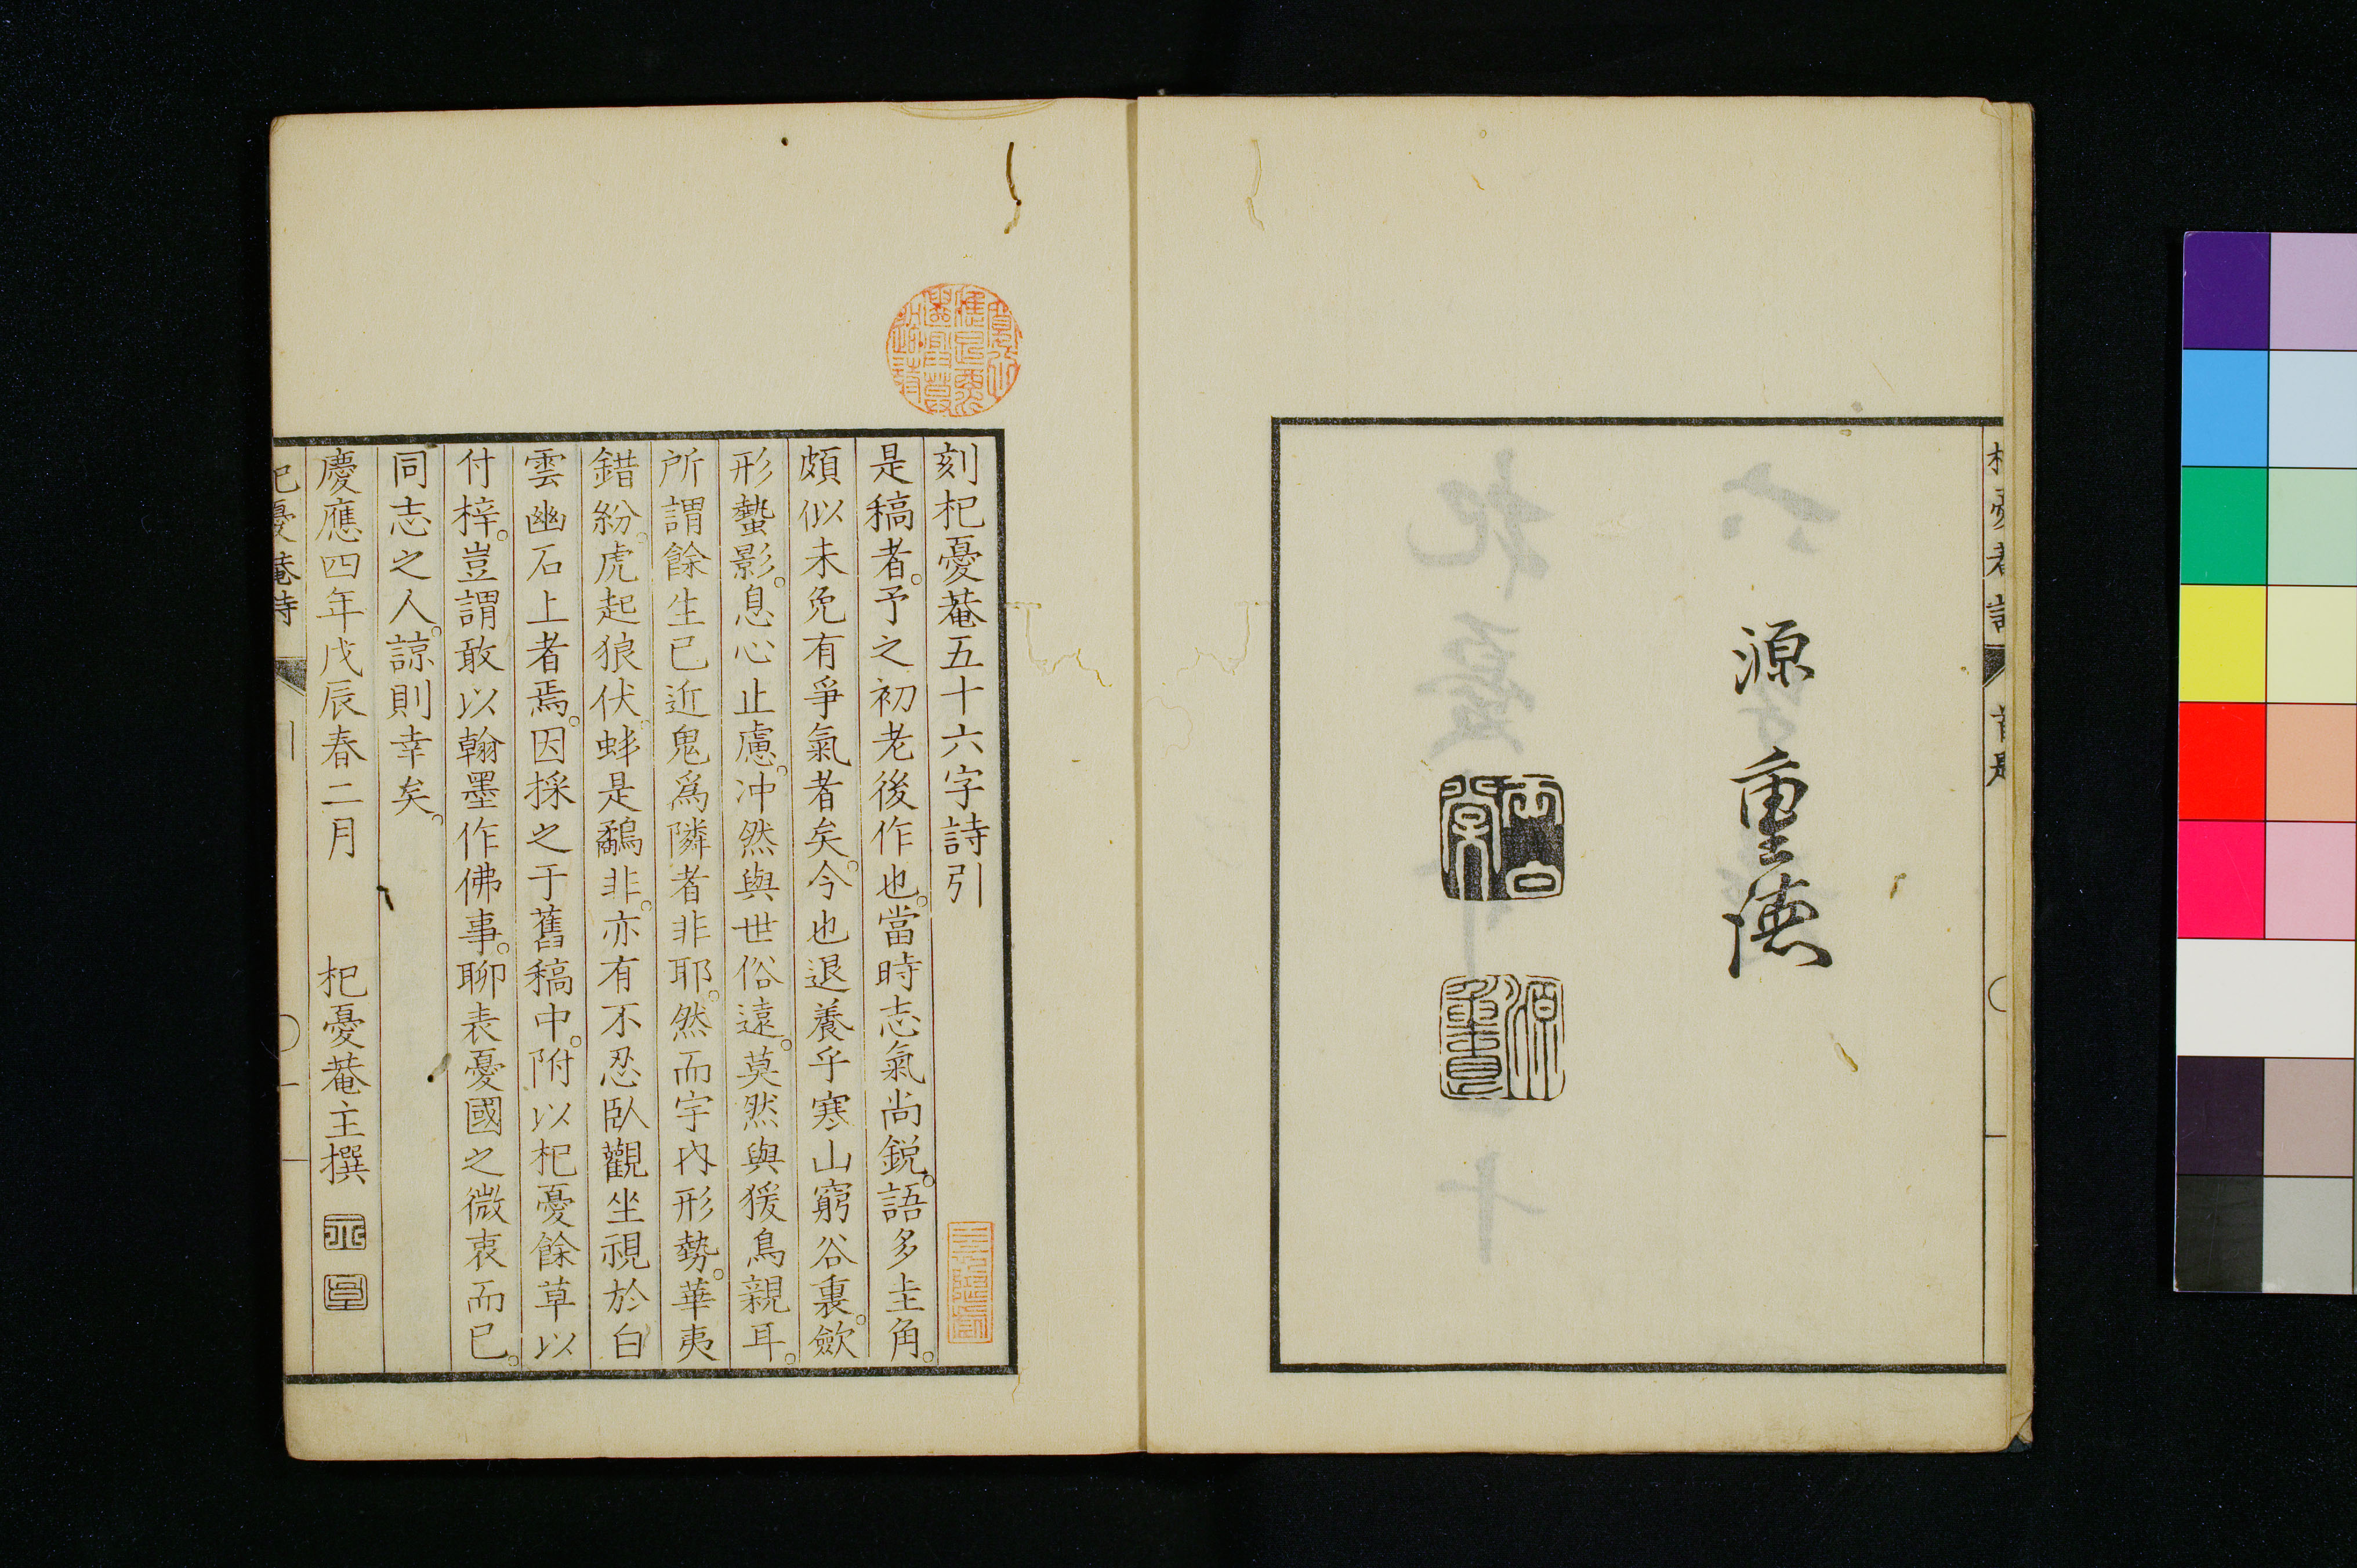 源重徳
刻杞憂菴五十六字詩引
是稿者。予之初老後作也。當時志氣尚鋭。語多圭角。
頗似未免有爭氣者矣。今也退養乎寒山窮谷裏。歛
形蟄影。息心止慮。冲然與世俗遠。莫然與猨鳥親耳。
所謂餘生已近鬼爲隣者非耶。然而宇内形勢。華夷
錯紛。虎起狼伏。蚌是鷸非。亦有不忍臥觀坐視於白
雲幽石上者焉。因採之于舊稿中。附以杞憂餘草以
付梓。豈謂敢以翰墨作佛事。聊表憂國之微衷而已。
同志之人。諒則幸矣。
慶應四年戊辰春二月　杞憂菴主撰
杞憂菴詩　引　一